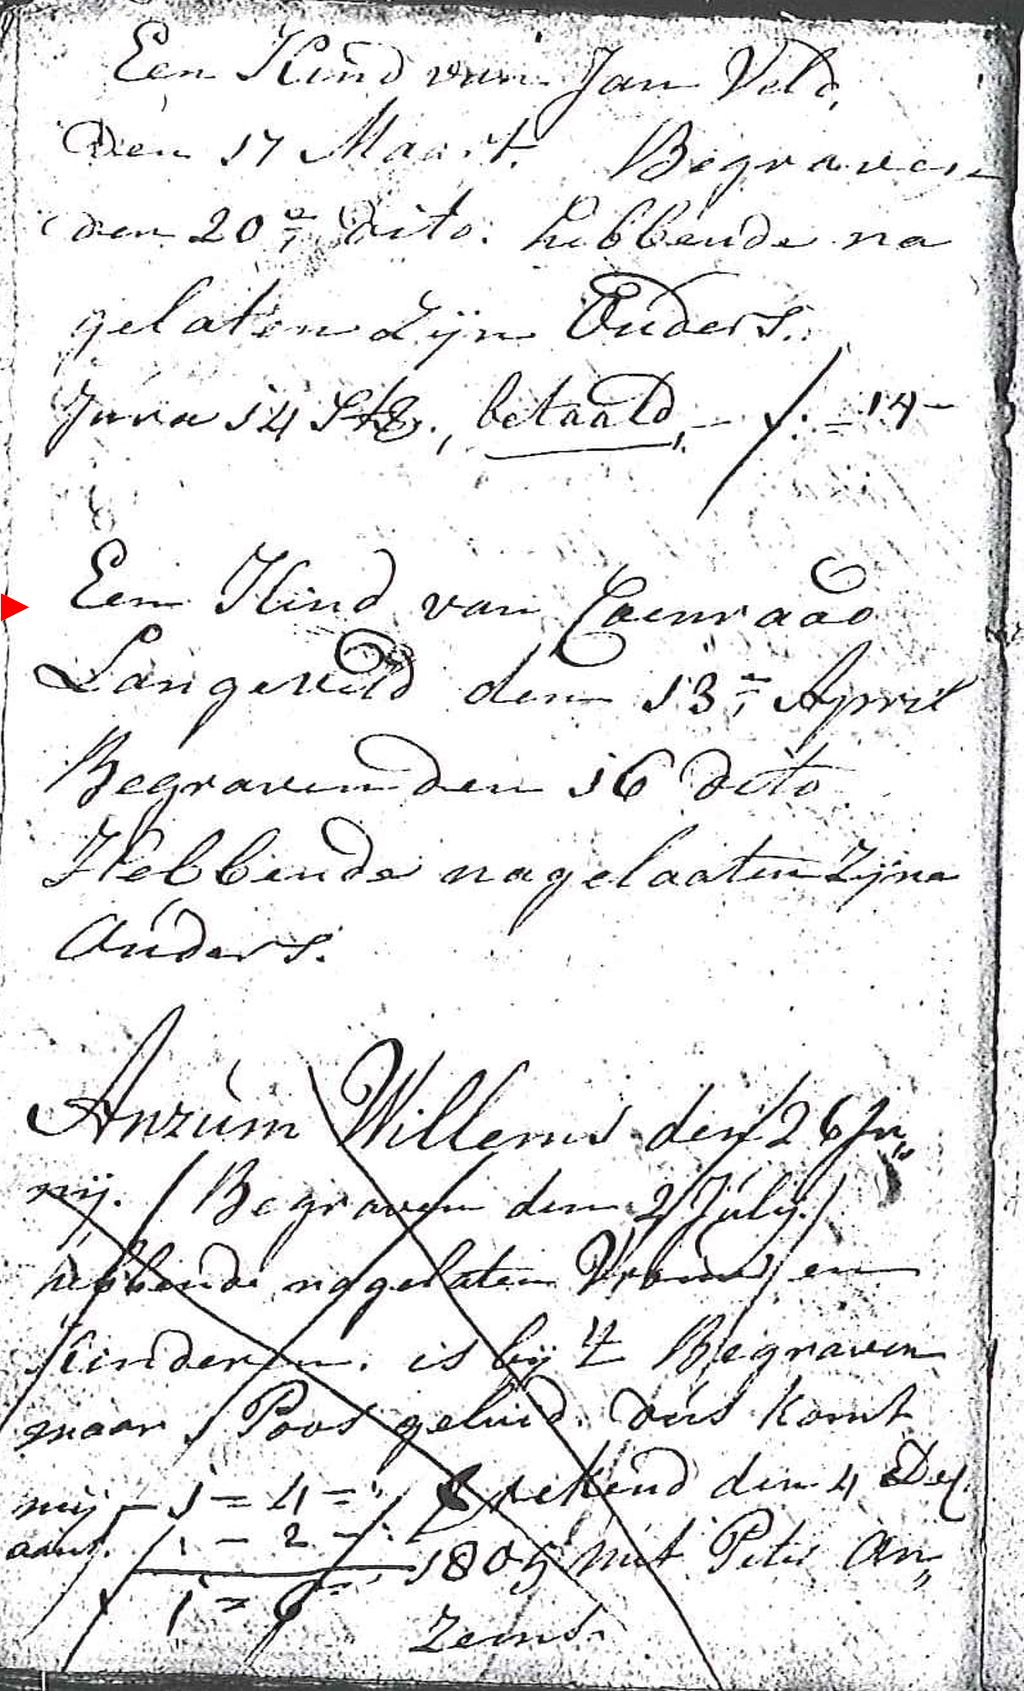 Een Kind van Jan Veld.
Den 17 Maart. Begraven
den 20e, dito. hebbende na
gelaten zijn Ouders.
Jura 14 Stb., betaald, - f: = 14 -
Een Kind van Coenraad
Langeveld den 13e, April
Begraven den 16 dito
Hebbende nagelaaten Zijne
Ouders.
Anzùm Willems den 26 Ju„
nij. / Begraven den 2 July. /
hebbende nagelaten Vrouw en
Kinderen. is bij 't Begraven
maar 1 Poos geluid. dus komt
mij - 1 = 4 = rekend den 4 Dec
aant. 1 - 2 - 1809 met Piter An„
zems.